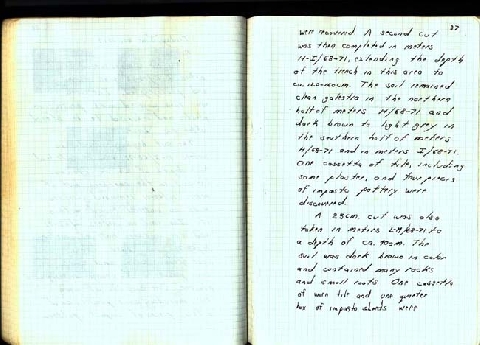 37
removed A second cut
was then completed in meters
H-I/68-71, extending the depth
of the trench in this area to
The soil remained
clean galestra in the northern
half of meters H/68-71 and
dark brown to light grey in
the southern half of meters
H/68-71 and in meters I/68-71.
One cassetta of tile, including
some plaster, and four pieces
of impasto pottery were
discovered.
A 25cm. cut was also
taken in meters /68-71 to
a depth of ca. The
soil was dark brown in color
and contained many rocks
and small roots One cassetta
of worn tile and one quarter
box of impasto sherds were